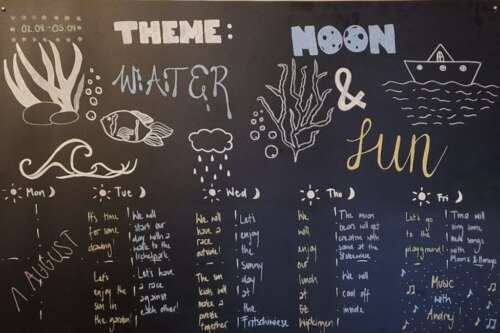 THEME:
MOON
WATER
&
SUN
Mon
Tue
Wed
Thu
Fri
1. AUGUST
It's
time
for
some
drawing!
We will
start our
day with a
walk to the
We will
have a
race
outside!
Let's
enjoy
the
sunny
day
at
the
We
will
enjoy
our
lunch
at
The moon
bears will get
creative with
some of the
Let's go
to the
playground!
Time will
sing some
with
Moons & Manya
Let's
enjoy the
sun in
the garden!
Let's have
a race
against
each other!
The sun
kids will
make a
praise
together
Fritschiwiese
We will
cool off
inside
Music
with
Andrej